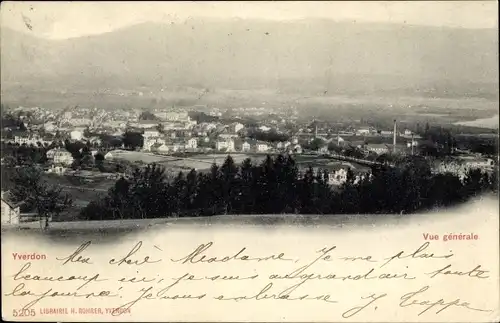 Yverdon
Vue générale
Ma chère Madame, Je me plais
beaucoup ici, je suis au grand air toute
la journée. Je vous embrasse J.
5205 LIBRAIRIE H. BOHRER, YVERDON